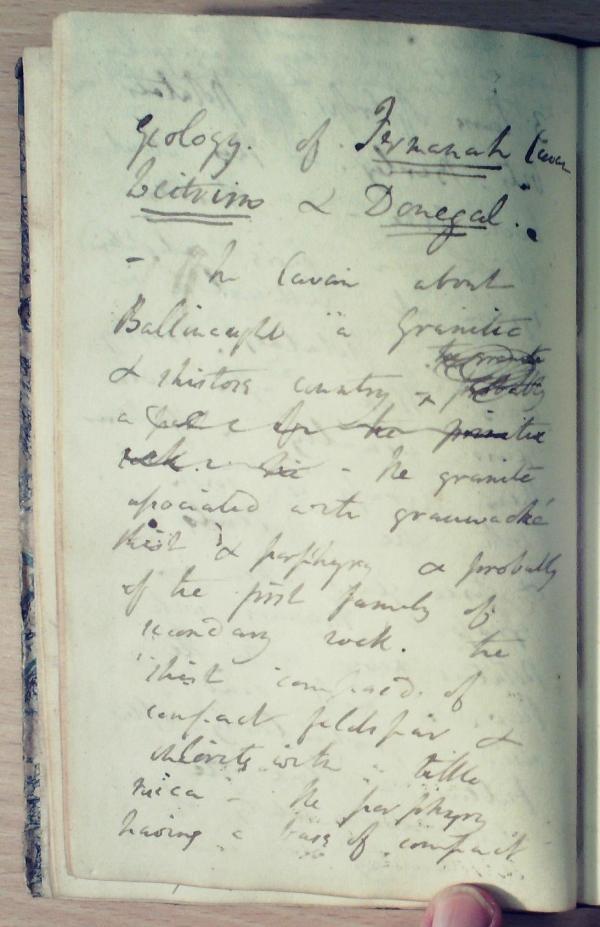 Geology. of Fermanah Cavan
Leitrim & Donegal.
- In Cavan about
a Granitic
& shistose country - the granite probably
a for the primitive
rock. - the granite
associated with grauwacke
shist & porphyry & probably
of the first family of
secondary rock. the
shist composed of
compact feldspar &
chlorite with a little
mica - the porphyry
having a base of compact